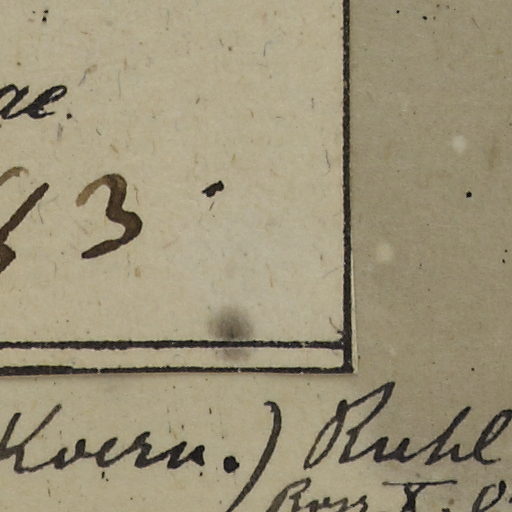 ae.
63.
Koern.) Ruhl